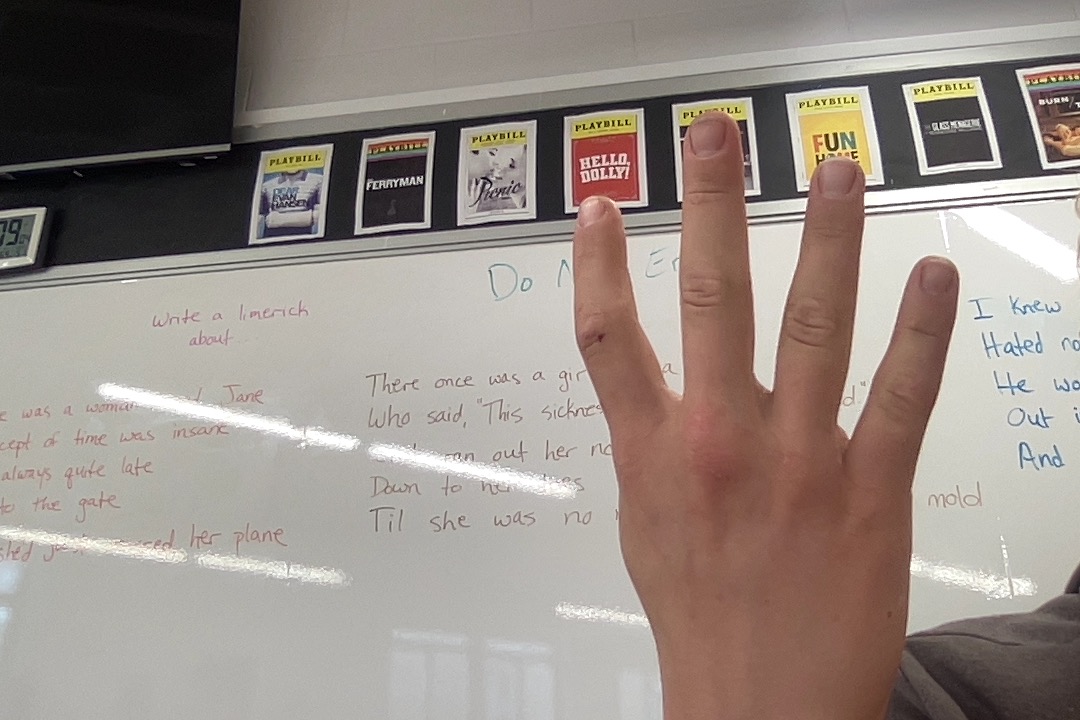 PLAYBILL
DEAR EVAN HANSEN
PLAYBILL
FERRYMAN
PLAYBILL
Picnic
PLAYBILL
HELLO, DOLLY!
PLAYBILL
PLAYBILL
FUN HOME
PLAYBILL
THE GLASS MENAGERIE
PLAYBILL
BURN/
79
Do Er
Write a limerick
about
e was a woman Jane
cept of time was insane
always quite late
to the gate
she'd her plane
There once was a gir a
Who said, "This sicknes d."
ran out her no
Down to her toes
Til she was no mold
I knew
Hated no
He wo
Out i
And